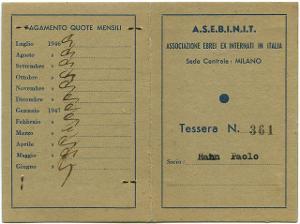 PAGAMENTO QUOTE MENSILI
Luglio 1946
Agosto »
Settembre »
Ottobre »
Novembre »
Dicembre »
Gennaio 1947
Febbraio »
Marzo »
Aprile »
Maggio »
Giugno »
A.S.E.B.I.N.I.T.
ASSOCIAZIONE EBREI EX INTERNATI IN ITALIA
Sede Centrale - MILANO
Tessera N. 361
Socio: Hahn Paolo